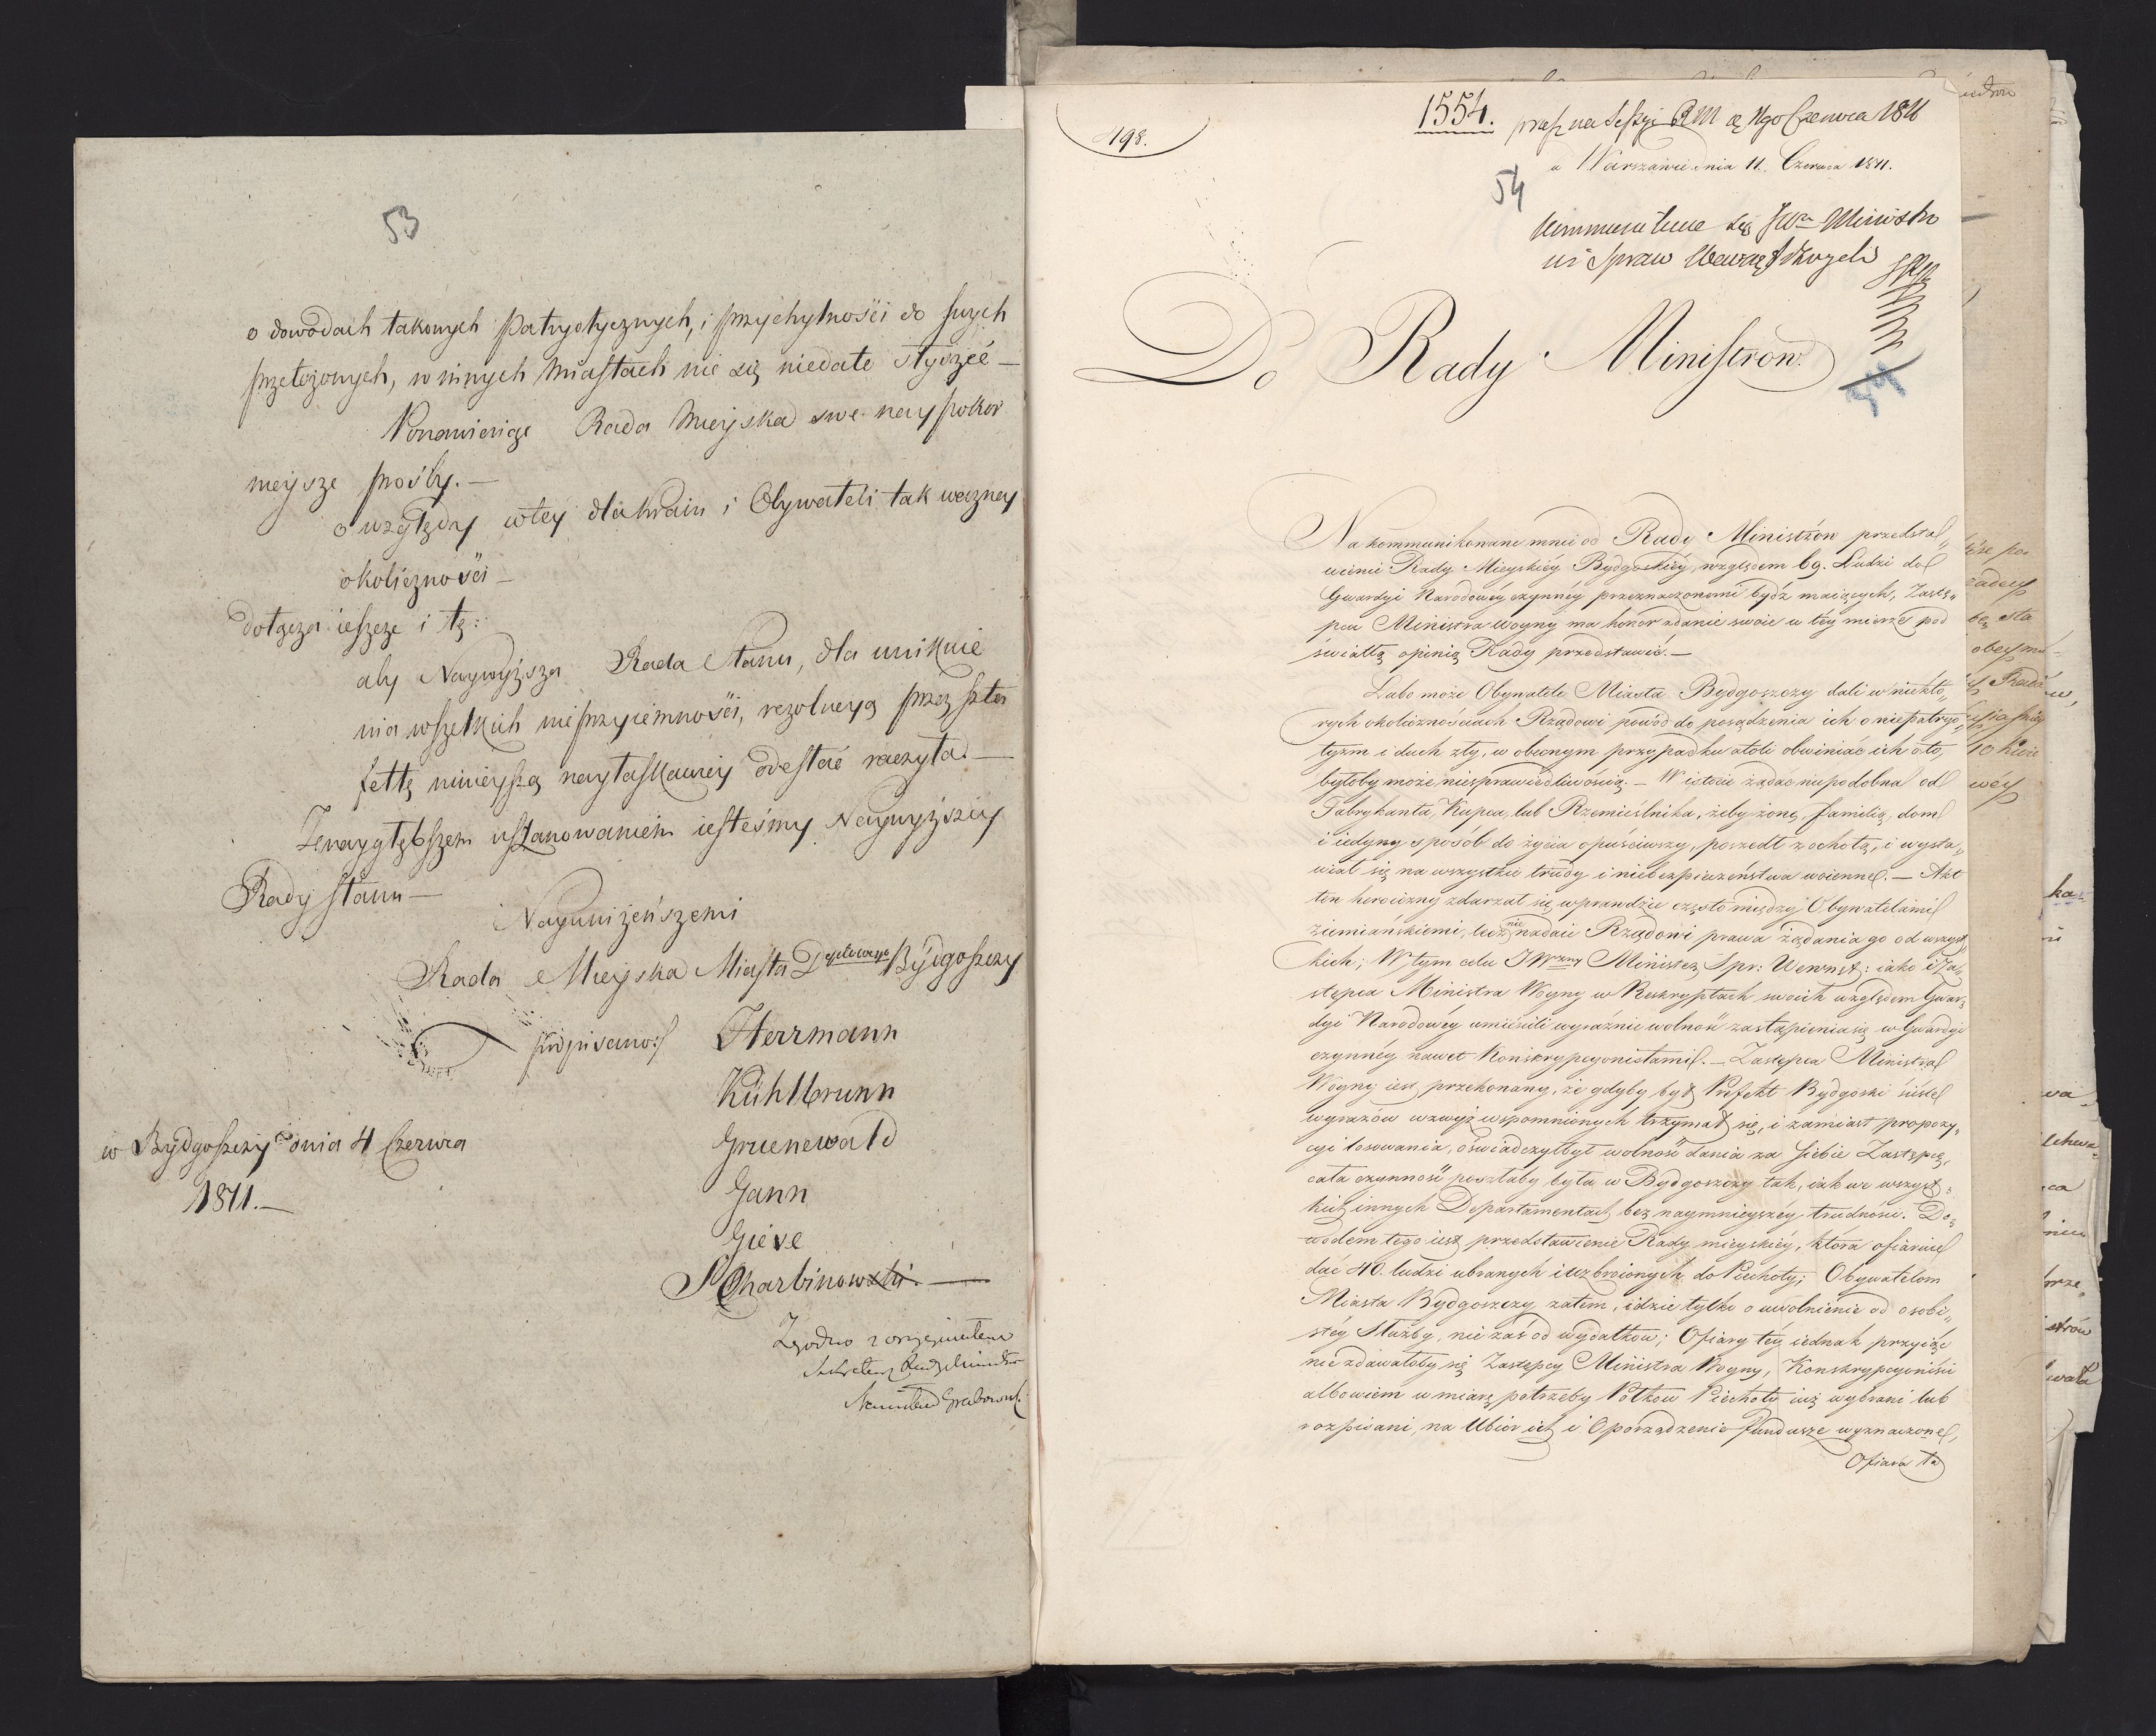 53
o dowodach takowych Patryotycznych, i przychylności do swych
przełożonych, w innych Miastach nie się niedało słyszéć —
Ponawiaiąc Rada Mieyska swe nay pokor
nieysze prośby. —
o względy w tey dla kraiu i Obywateli tak ważney
okoliczności —
dołącza ieszcze i tę:
aby Naywyższa Rada Stanu, dla uniknie
nia wszelkich nieprzyiemności, rezolucyą przez szta
fettę ninieyszą nayłaskawiey odesłać raczyła. —
Z naygłębszem uszanowaniem iesteśmy Naywyższey
Rady Stanu —
Nayuniżeńszemi
Rada Mieyska Miasta Bydgoszczy
podpisano: Herrmann
Kühlbrunn
Gruenewald
Gann
Giese
S Charbinowski. —
w Bydgoszczy dnia 4 Czerwca
1811. —
Zgodno z oryginałem
Sekretarz Rady Ministrów
Grabowski
198.
1554. na Sessyi RM 11go Czerwca 1811
w Warszawie dnia 11. Czerwca 1811.
54
się JWu Ministro
wi Spraw Wewnętrznych
Do Rady Ministrow.
54
Na kommunikowane mnie od Rady Ministrów przedsta„
wienie Rady Mieyskiéy Bydgoskiéy, względem 69. Ludzi do
Gwardyi Narodowéy czynnéy przeznaczonemi bydź maiących, Zastę„
pca Ministra Woyny ma honor zdanie swoie w téy mierze pod
światłą opinią Rady przedstawić. —
Lubo może Obywatele Miasta Bydgoszczy dali w niektó„
rych okolicznościach Rządowi powód do posądzenia ich o niepatryo„
tyzm i duch zły, w obecnym przypadku atoli obwiniać ich o to,
byłoby może niesprawiedliwością. — W istocie żądać niepodobna od
Fabrykanta, Kupca, lub Rzemieślnika, żeby żonę, familią, dom
i iedyny sposób do życia opuściwszy, poszedł z ochotą, i wysta„
wiał się na wszystkie trudy i niebezpieczeństwa woienne. — Akt
ten heroiczny zdarzał się wprawdzie często między Obywatelami
ziemiańskiemi, lecz nie nadaie Rządowi prawa żądania go od wszyst„
kich; W tym celu JWzny Minister Spr: Wewnęt: iako i Za„
stępca Ministra Woyny w Reskryptach swoich względem Gwar„
dyi Narodowéy umieścili wyraźnie wolność zastąpienia się w Gwardyi
czynnéy nawet Konskrypcyonistami. — Zastępca Ministra
Woyny iest przekonany, że gdyby był Prefekt Bydgoski ściśle
wyrazów wzwyż wspomnionych trzymał się, i zamiast propozy„
cyi losowania, oświadczyłbył wolność dania za siebie Zastępcę,
cała czynność poszłaby była w Bydgoszczy tak, iak we wszyst„
kich innych Departamentach bez naymnieyszéy trudności. Do„
wodem tego iest przedstawienie Rady mieyskiéy, która ofiaruie
dać 40. ludzi ubranych i uzbroionych do Piechoty; Obywatelom
Miasta Bydgoszczy zatem, idzie tylko o uwolnienie od osobi„
stéy Służby, nie zaś od wydatków; Ofiary téy iednak przyiąć
nie zdawałoby się Zastępcy Ministra Woyny, Konskrypcyoniści
albowiem w miarę potrzeby Półków Piechoty iuż wybrani lub
rozpisani, na Ubiór ich i Oporządzenie fundusze wyznaczone,
Ofiara ta